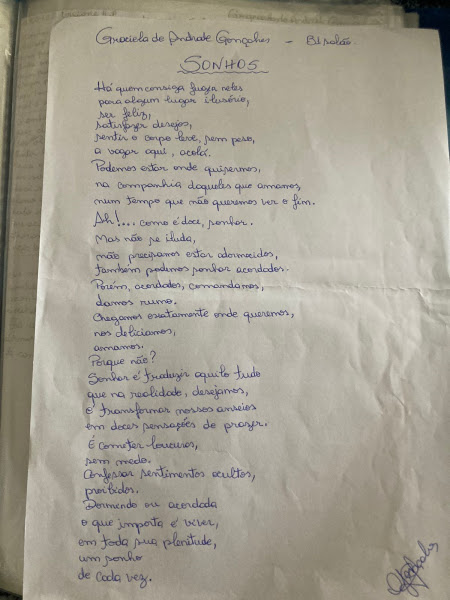 Graciela de Andrade Gonçalves -
SONHOS
Há quem consiga fugir neles
para algum lugar ilusório,
ser feliz,
satisfazer desejos,
sentir o corpo leve, sem peso,
a vagar aqui, acolá.
Podemos estar onde quisermos,
na companhia daqueles que amamos,
num tempo que não queremos ver o fim.
Ah!.... como é doce, sonhar.
Mas não se iluda,
não precisamos estar adormecidos,
também podemos sonhar acordados.
Porém, acordados, comandamos,
damos rumo.
Chegamos exatamente onde queremos,
nos deliciamos,
amamos.
Porque não?
Sonhar é traduzir aquilo tudo
que na realidade, desejamos,
é transformar nossos anseios
em doces sensações de prazer.
É cometer loucuras,
sem medo.
Confessar sentimentos ocultos,
proibidos.
Dormindo ou acordada
o que importa é viver,
em toda sua plenitude,
um sonho
de cada vez.